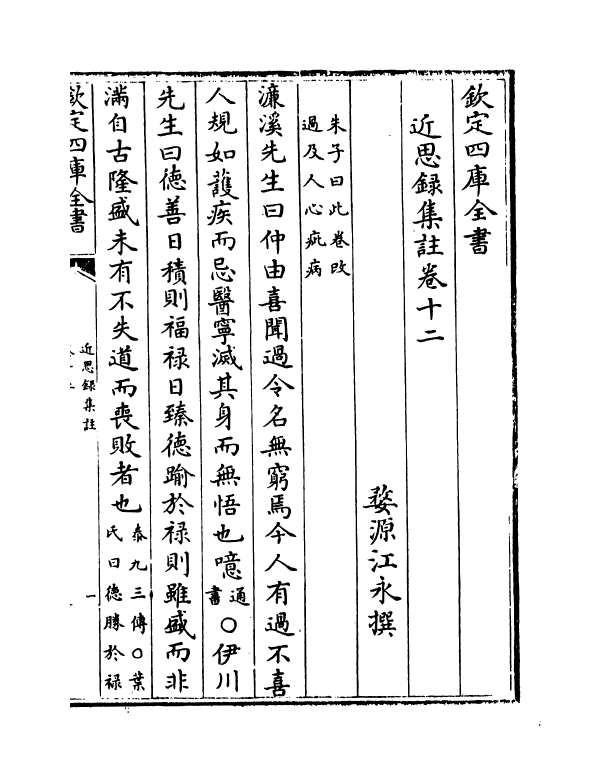 欽定四庫全書
近思録集註卷十二
婺源江永撰
朱子曰此卷改
過及人心疵病
濂溪先生曰仲由喜聞過令名無窮焉今人有過不喜
人規如護疾而忌醫寧滅其身而無悟也噫通書○伊川
先生曰德善日積則福禄日臻德踰於禄則雖盛而非
滿自古隆盛未有不失道而喪敗者也泰九三傳○葉氏曰德勝於禄
欽定四庫全書
近思録集註
一